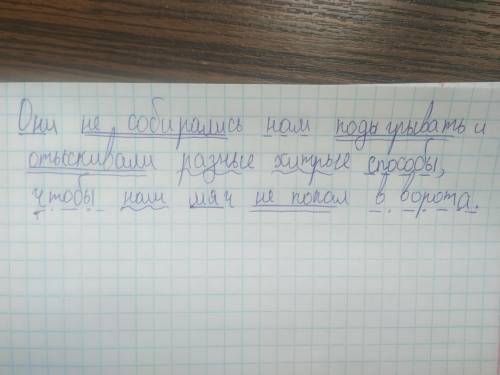 Они не собирались нам подыгрывать и
отыскивали разные хитрые способы,
чтобы наш мяч не попал в ворота.